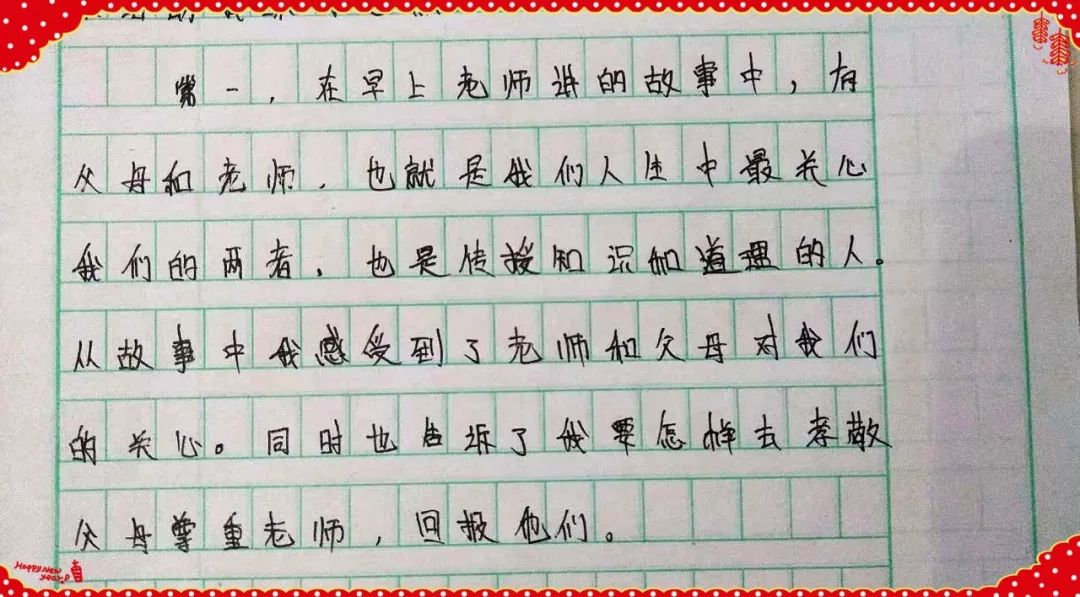 第一，在早上老师讲的故事中，有
父母和老师，也就是我们人生中最关心
我们的两者，也是传授知识和道理的人。
从故事中我感受到了老师和父母对我们
的关心。同时也告诉了我要怎样去孝敬
父母尊重老师，回报他们。
HAPPY NEW
YEAR